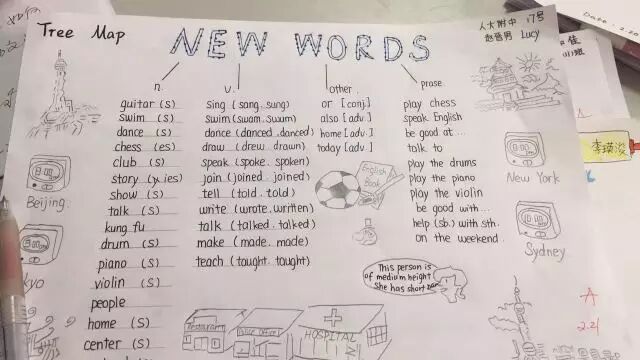 Tree Map
NEW WORDS
人大附中 17号
Lucy
Date: 2.20
n.
v.
other.
prase.
guitar (s)
swim (s)
dance (s)
chess (es)
club (s)
story (y.ies)
show (s)
talk (s)
kung fu
drum (s)
piano (s)
violin (s)
people
home (s)
center (s)
sing (sang. sung)
swim (swam. swum)
dance (danced .danced)
draw (drew. drawn)
speak (spoke. spoken)
join (joined. joined)
tell (told. told)
write (wrote. written)
talk (talked. talked)
make (made. made)
teach (taught. taught)
or [conj.]
also [adv.]
home [adv.]
today [adv.]
English
Book
play chess
speak English
be good at ...
talk to
play the drums
play the piano
play the violin
be good with...
help (sb.) with sth.
on the weekend
Beijing
New York
Sydney
This person is
of medium height
She has short
Restaurant
Police Office
HOSPITAL
A
2.21